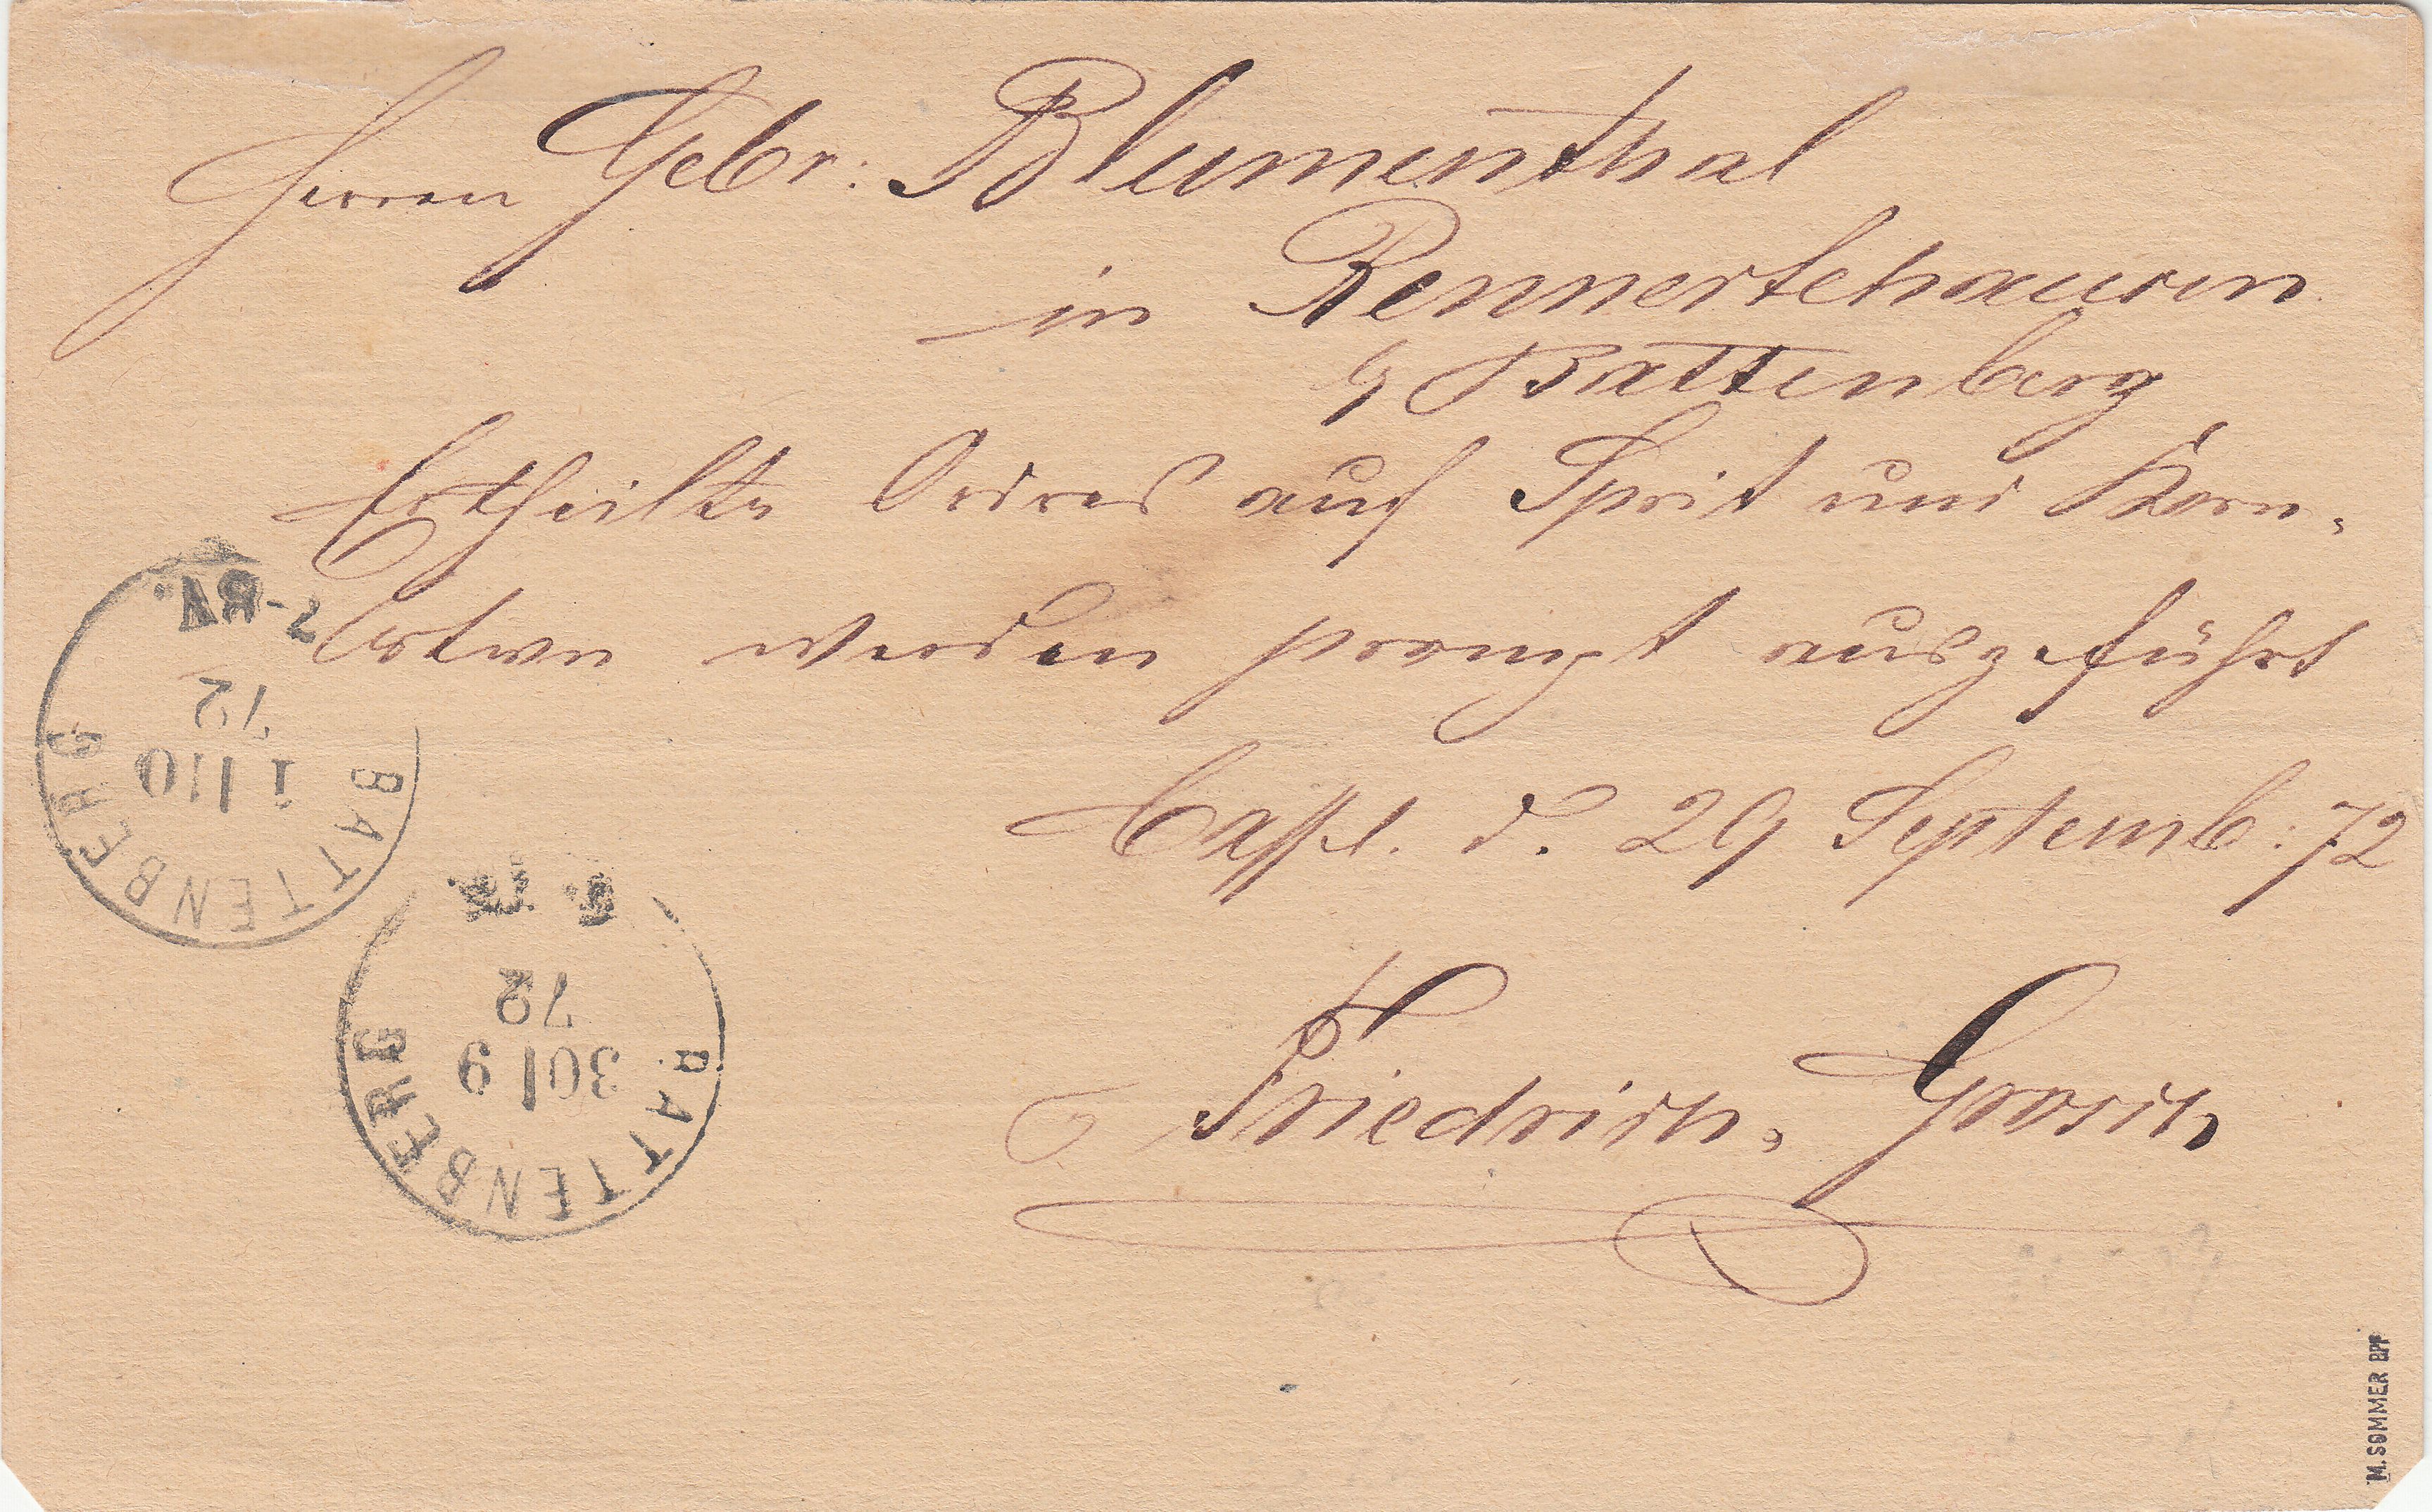 Herren Gebr: Blumenthal
in Rennertehausen
b/ Battenberg
Ertheilte Ordres auf Sprit und Korn-
werden prompt ausgeführt
Cassel. d. 29 Septemb: 72
Friedrich
BATTENBERG
1 10
72
7-8V.
BATTENBERG
30 9
72
M. SOMMER BPP